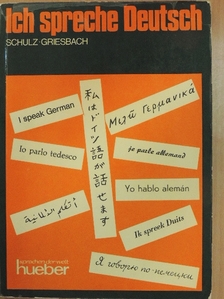 Ich spreche Deutsch
SCHULZ·GRIESBACH
I speak German
Μιλῶ Γερμανικά
私はドイツ語が話せます
Io parlo tedesco
je parle allemand
Yo hablo alemán
أتكلم الألمانية
Ik spreek Duits
Я говорю по-немецки
sprachen der welt
hueber